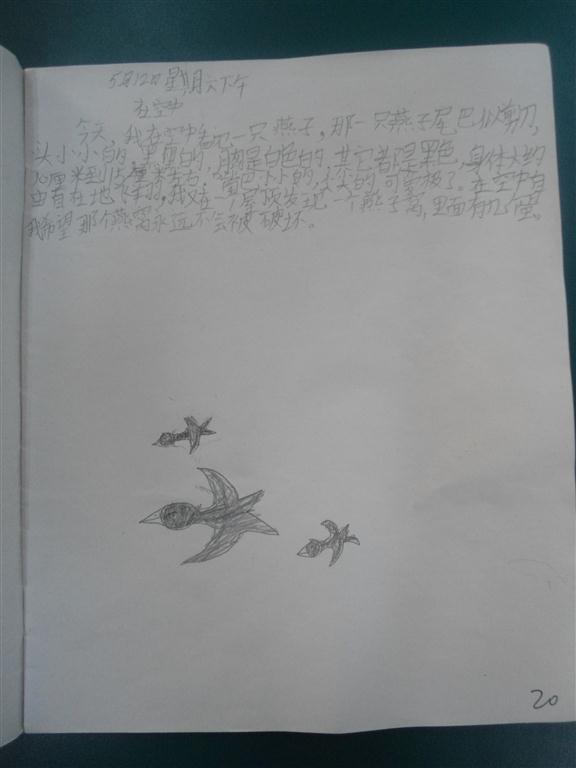 5月12日星期六下午
在空中
今天,我在空中看见一只燕子,那一只燕子尾巴似剪刀,
头小小的,黑色的,胸是白色的,其它都是黑色,身体大约
10厘米到15厘米左右,嘴巴小小的,尖尖的,可爱极了。在空中自
由自在地飞翔,我又在一屋顶发现一个燕子窝,里面有几只蛋。
我希望那个燕窝永远不会被破坏。
20